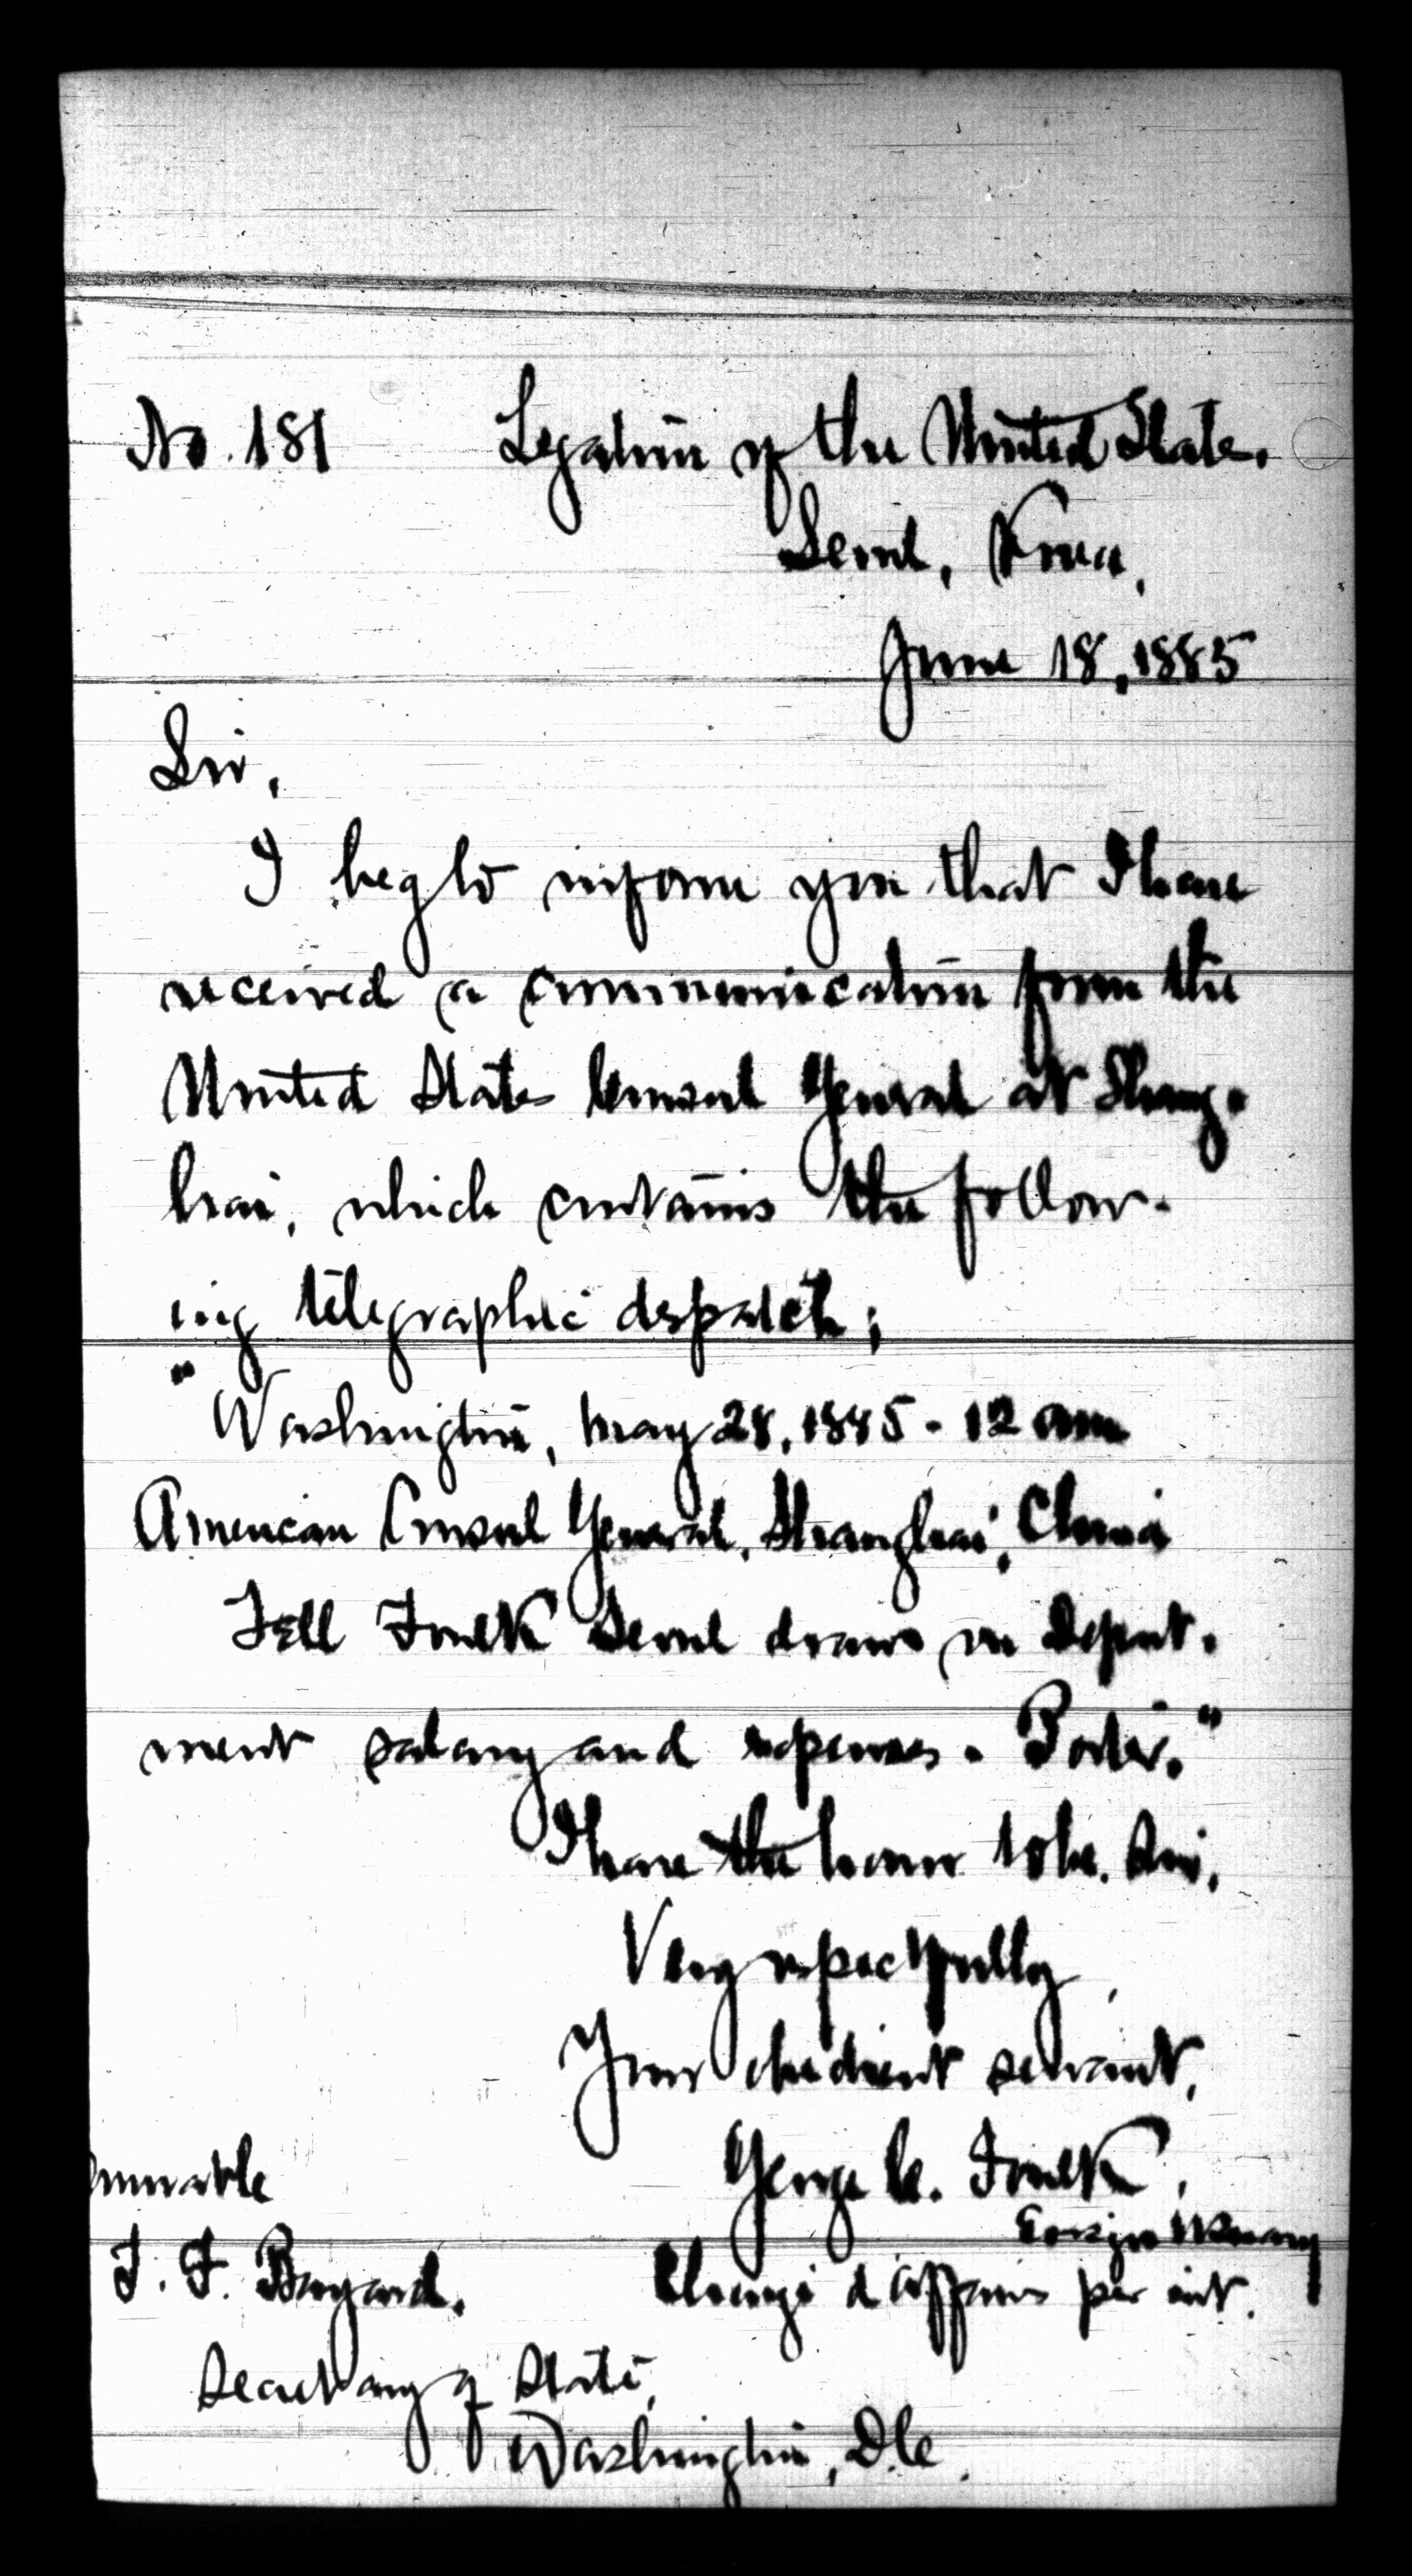 No. 181 Legation of the United States.
Seoul, Korea,
June 18, 1885
Sir,
I beg to inform you that I have
received a communication from the
United States Consul General at Shang-
hai, which contains the follow-
ing telegraphic despatch;
"Washington, May 28, 1885 - 12 am
American Consul General, Shanghai, China
Tell Foulk Seoul draw on Depart-
ment salary and expenses. Porter."
I have the honor to be, Sir,
Very respectfully,
Your obedient servant,
George C. Foulk,
Ensign U.S. Navy
Chargé d'Affaires per int.
onorable
T. F. Bayard,
Secretary of State,
Washington, D.C.